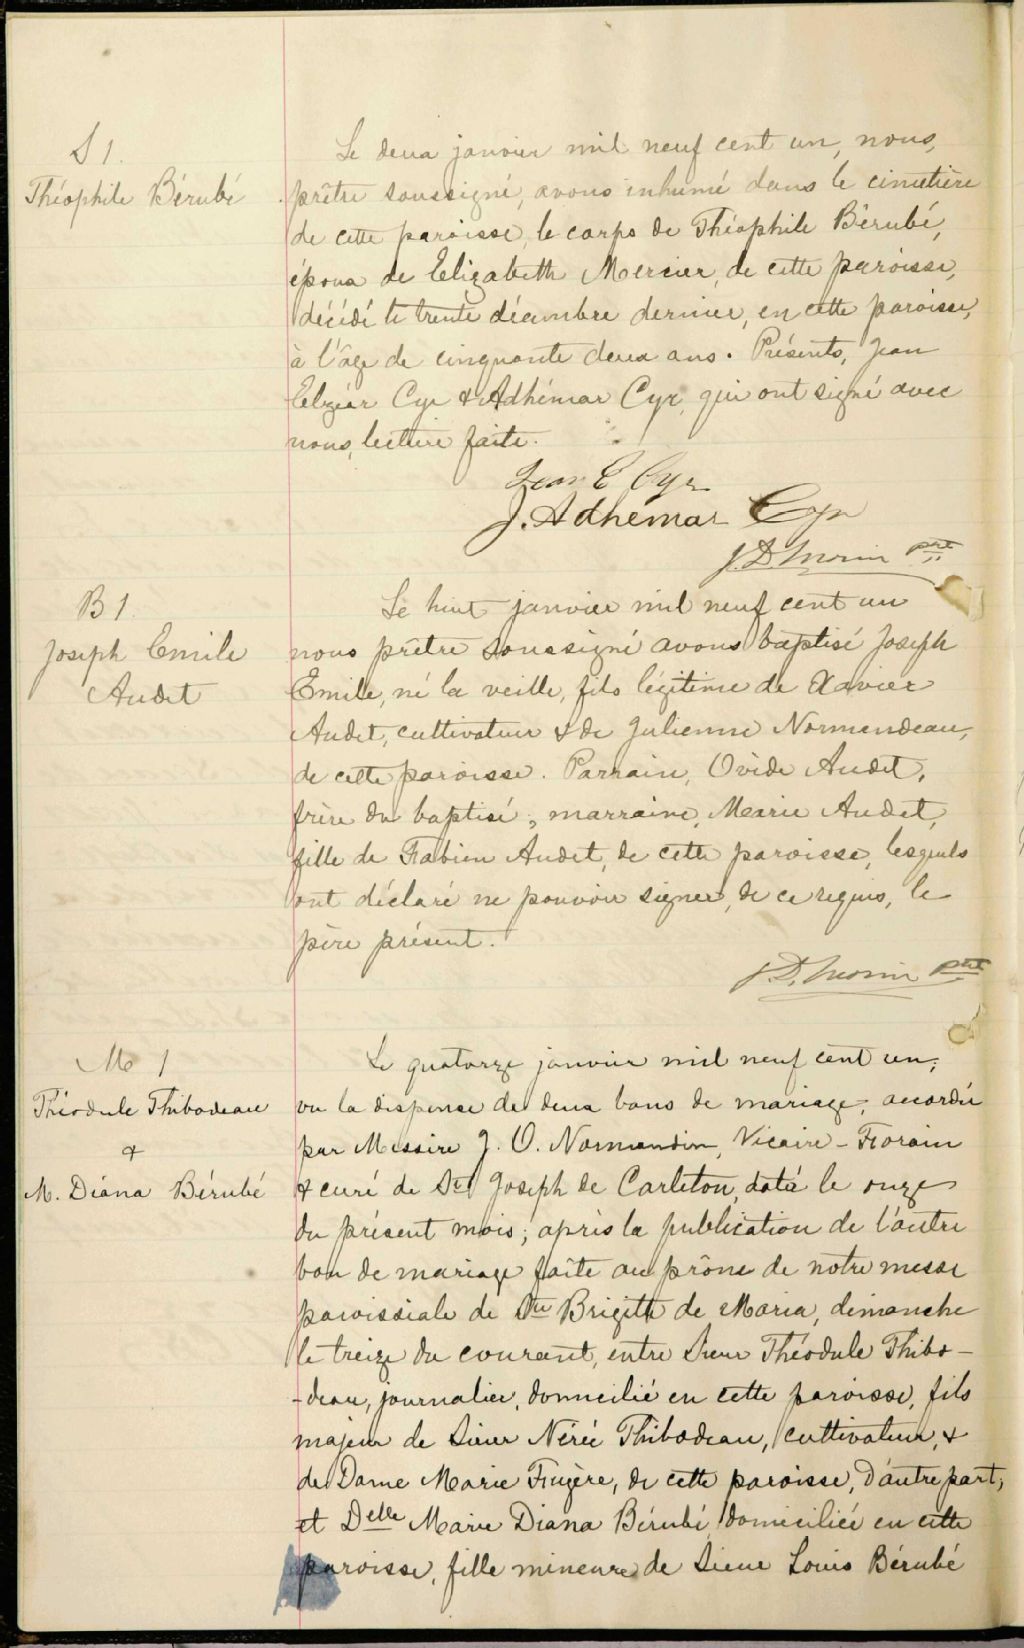 S 1.
Théophile Bérubé
Le deux janvier mil neuf cent un, nous,
prêtre soussigné, avons inhumé dans le cimetière
de cette paroisse, le corps de Théophile Bérubé,
époux de Elizabeth Mercier, de cette paroisse,
décédé le trente décembre dernier, en cette paroisse,
à l'âge de cinquante deux ans. Présents, Jean
Elzéar Cyr & Adhémar Cyr, qui ont signé avec
nous, lecture faite.
Jean E Cyr
J. Adhémar Cyr
J. D. Morin ptre
B 1.
Joseph Emile
Audet
Le huit janvier mil neuf cent un
nous prêtre soussigné avons baptisé Joseph
Emile, né la veille, fils légitime de Xavier
Audet, cultivateur & de Julienne Normandeau,
de cette paroisse. Parrain, Ovide Audet,
frère du baptisé, marraine, Marie Audet,
fille de Fabien Audet, de cette paroisse, lesquels
ont déclaré ne pouvoir signer, de ce requis, le
père présent.
J. D. Morin ptre
M 1
Théodule Thibodeau
&
M. Diana Bérubé
Le quatorze janvier mil neuf cent un;
vu la dispense de deux bans de mariage, accordée
par Messire J. O. Normandin, Vicaire-Forain
& curé de St Joseph de Carleton, daté le onze
du présent mois; après la publication de l'autre
ban de mariage faite au prône de notre messe
paroissiale de Ste Brigitte de Maria, dimanche
le treize du courant, entre Sieur Théodule Thibo-
-deau, journalier, domicilié en cette paroisse, fils
majeur de Sieur Nérée Thibodeau, cultivateur, &
de Dame Marie Fugère, de cette paroisse, d'autre part;
et Delle Marie Diana Bérubé domiciliée en cette
paroisse, fille mineure de Sieur Louis Bérubé